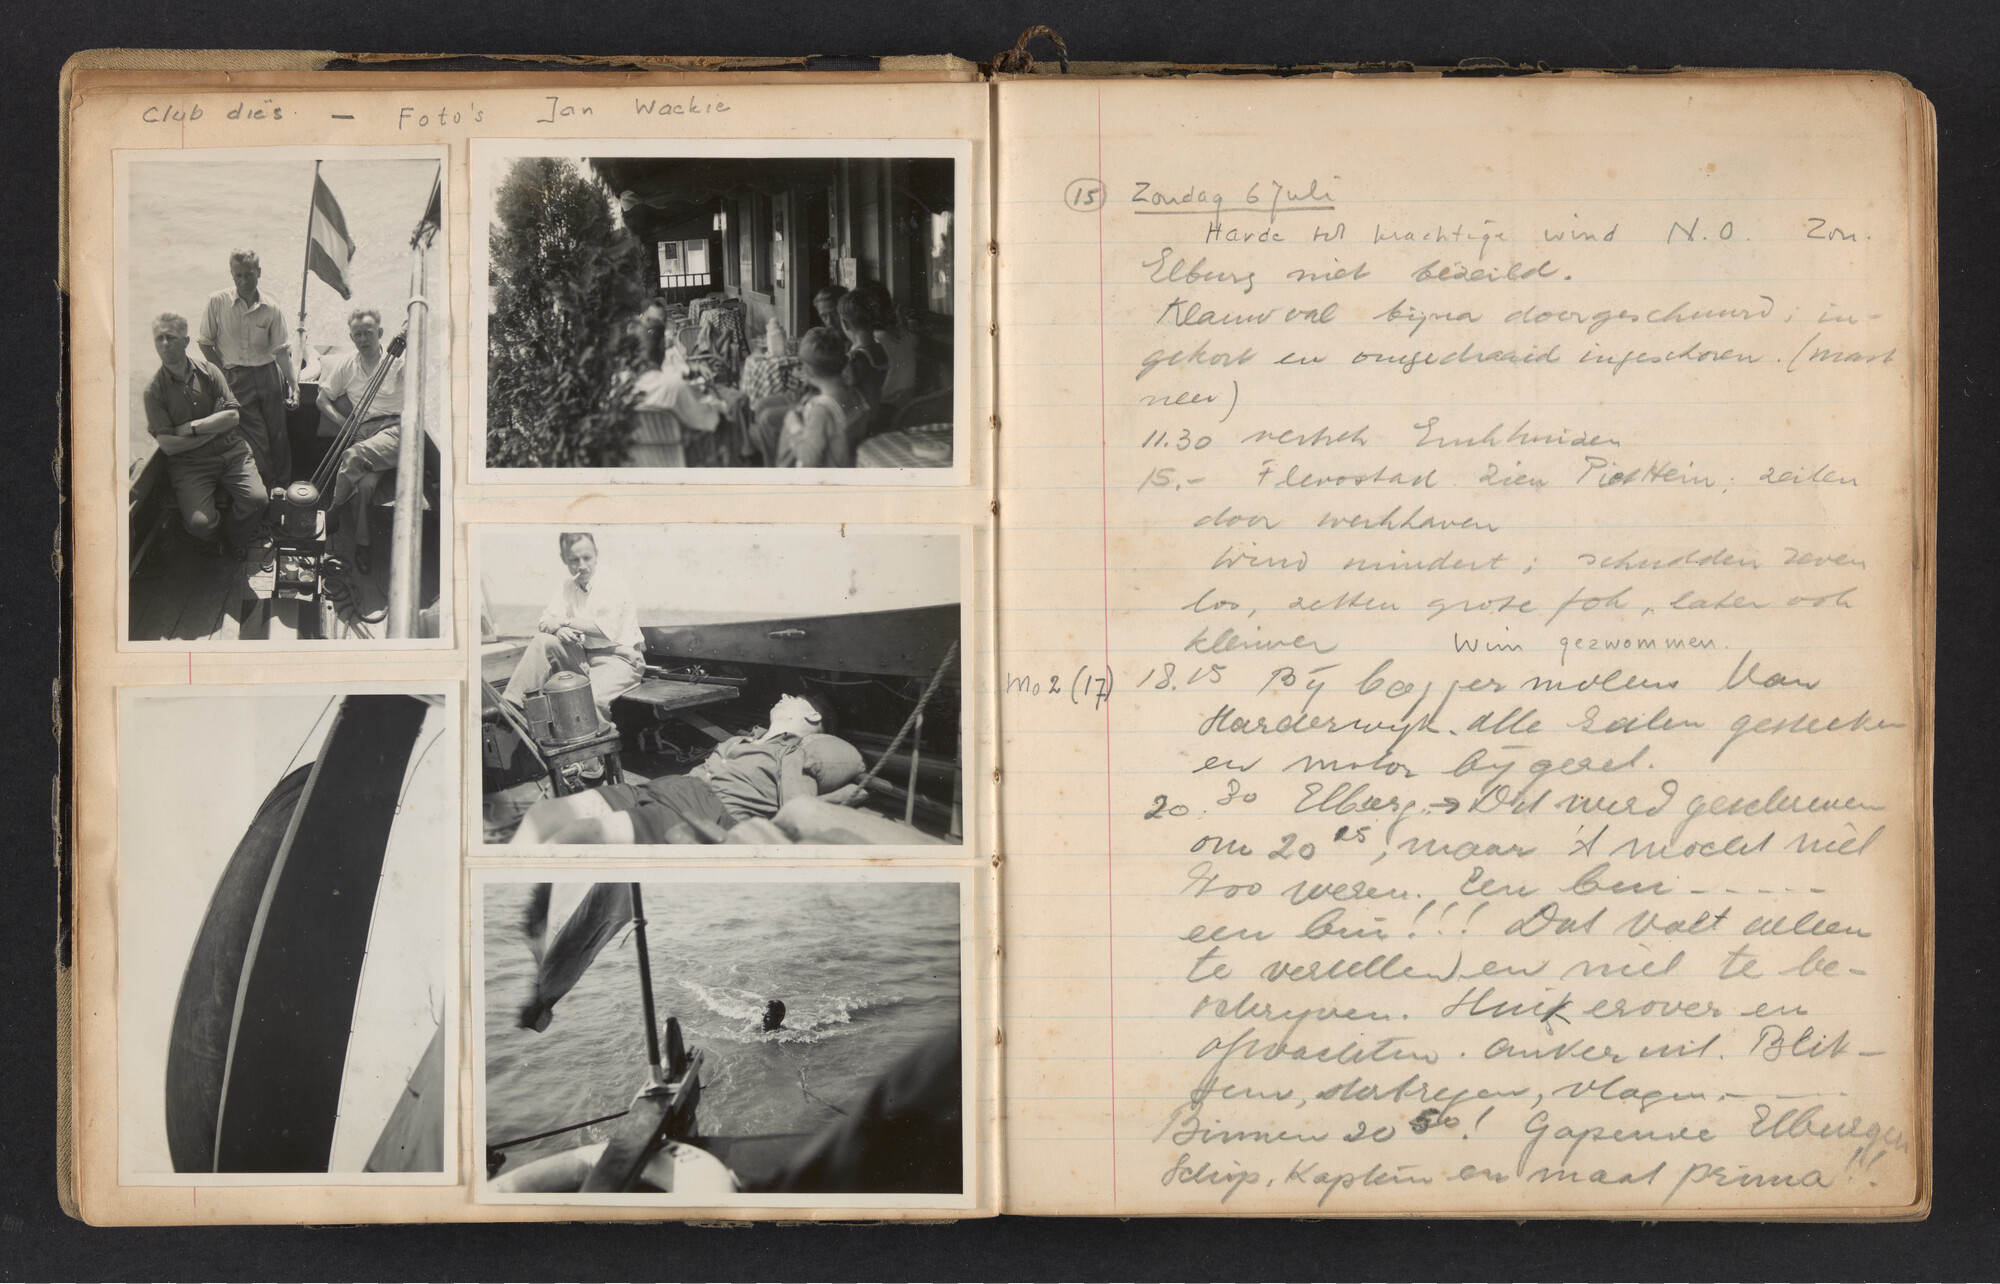 Club diës. — Foto's Jan Wackie
15 Zondag 6 Juli
Harde tot krachtige wind N.O. Zon.
Elburg niet bezeild.
Klauwval bijna doorgeschuurd; in-
gekort en omgedraaid ingeschoren. (mast
neer)
11.30 vertrek Enkhuizen
15.- Flevostad zien Piet Hein; zeilen
door werkhaven
Wind mindert; schudden reven
los, zetten grote fok, later ook
kluiver Wim gezwommen.
Mo 2 (17) 18.15 Bij baggermolens van
Harderwijk. alle zeilen gestreken
en motor bijgezet.
20.30 Elburg → Dit werd geschreven
om 20 25, maar 't mocht niet
zoo wezen. Een bui - - - - -
een bui!!! Dat valt alleen
te vertellen en niet te be-
schrijven. Huik erover en
afwachten. anker uit. Blik-
sem, stortregen, vlagen - - -
Binnen 20 50! Gapende Elburgers
Schip, Kaptein en maat prima!!